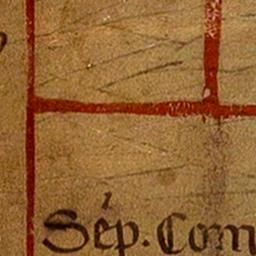 Sép. Com